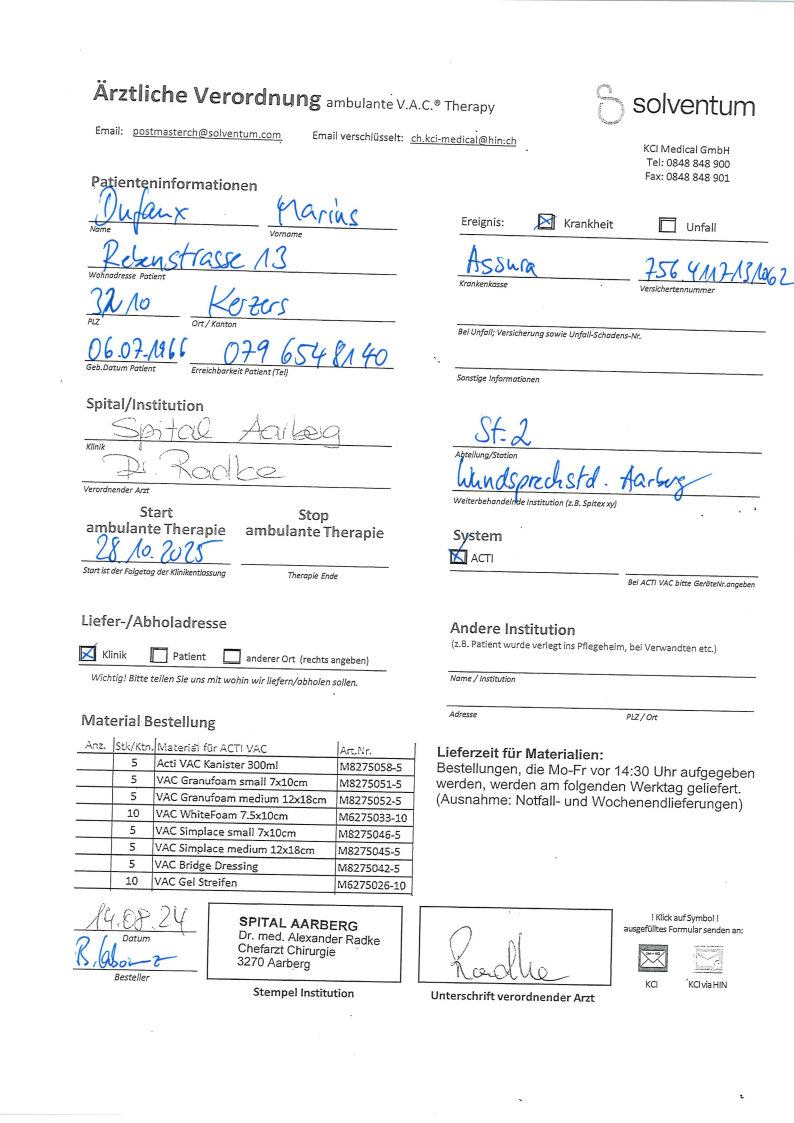 Ärztliche Verordnung ambulante V.A.C.® Therapy
solventum
Email: postmasterch@solventum.com Email verschlüsselt: ch.kci-medical@hin.ch
KCI Medical GmbH
Tel: 0848 848 900
Fax: 0848 848 901
Patienteninformationen
Dufaux Marius
Name Vorname
Rebenstrasse 13
Wohnadresse Patient
3210 Kerzers
PLZ Ort / Kanton
06.07.1966 079 654 81 40
Geb.Datum Patient Erreichbarkeit Patient (Tel)
Ereignis: Krankheit Unfall
Assura 756 4117 131062
Krankenkasse Versichertennummer
Bei Unfall; Versicherung sowie Unfall-Schadens-Nr.
Sonstige Informationen
Spital/Institution
Spital Aarberg
Klinik
Dr. Radke
Verordnender Arzt
St. 2
Abteilung/Station
Wundsprechstd. Aarberg
Weiterbehandelnde Institution (z.B. Spitex xy)
Start Stop
ambulante Therapie ambulante Therapie
28.10.2025
Start ist der Folgetag der Klinikentlassung Therapie Ende
System
ACTI
Bei ACTI VAC bitte GeräteNr.angeben
Liefer-/Abholadresse
Klinik Patient anderer Ort (rechts angeben)
Wichtig! Bitte teilen Sie uns mit wohin wir liefern/abholen sollen.
Andere Institution
(z.B. Patient wurde verlegt ins Pflegeheim, bei Verwandten etc.)
Name / Institution
Adresse PLZ / Ort
Material Bestellung
Anz. Stk/Ktn. Material für ACTI VAC Art.Nr.
5 Acti VAC Kanister 300ml M8275058-5
5 VAC Granufoam small 7x10cm M8275051-5
5 VAC Granufoam medium 12x18cm M8275052-5
10 VAC WhiteFoam 7.5x10cm M6275033-10
5 VAC Simplace small 7x10cm M8275046-5
5 VAC Simplace medium 12x18cm M8275045-5
5 VAC Bridge Dressing M8275042-5
10 VAC Gel Streifen M6275026-10
Lieferzeit für Materialien:
Bestellungen, die Mo-Fr vor 14:30 Uhr aufgegeben
werden, werden am folgenden Werktag geliefert.
(Ausnahme: Notfall- und Wochenendlieferungen)
14.08.24
Datum
Besteller
SPITAL AARBERG
Dr. med. Alexander Radke
Chefarzt Chirurgie
3270 Aarberg
Stempel Institution
Radke
Unterschrift verordnender Arzt
! Klick auf Symbol !
ausgefülltes Formular senden an:
KCI KCI via HIN